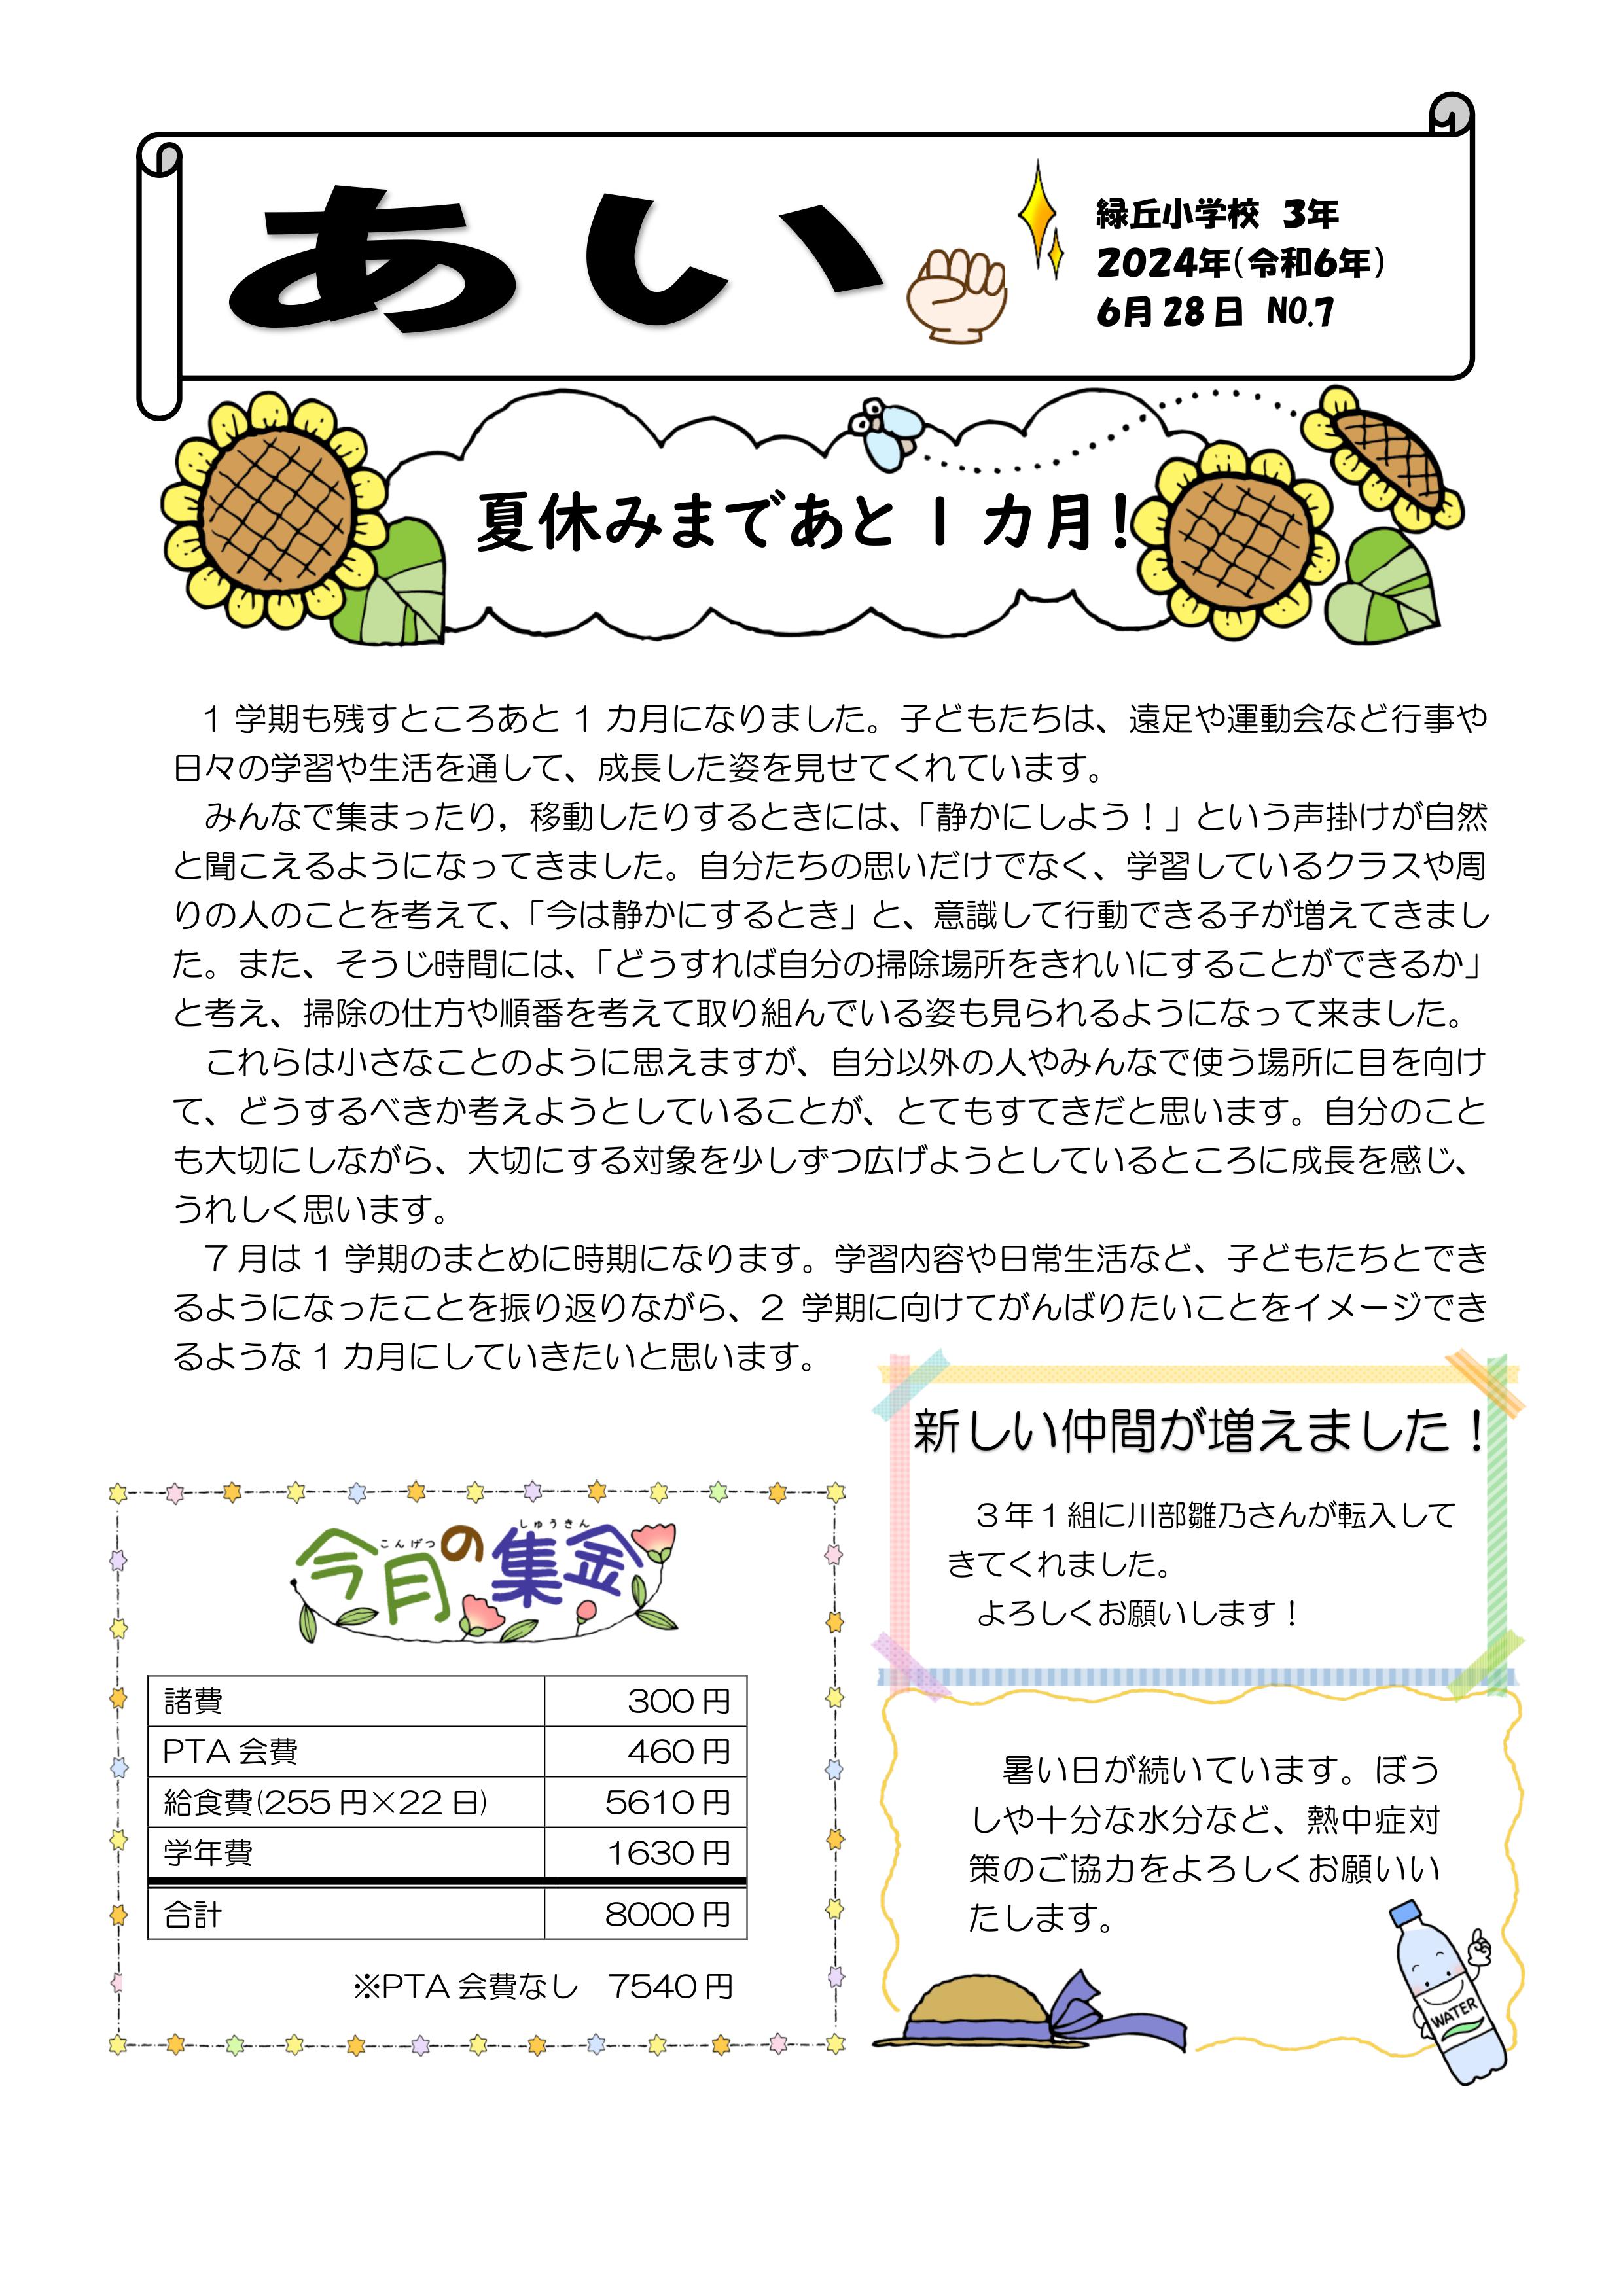 あい
緑丘小学校 3年
2024年(令和6年)
6月28日 NO.7
夏休みまであと1カ月!
1学期も残すところあと1カ月になりました。子どもたちは、遠足や運動会など行事や
日々の学習や生活を通して、成長した姿を見せてくれています。
みんなで集まったり，移動したりするときには、「静かにしよう！」という声掛けが自然
と聞こえるようになってきました。自分たちの思いだけでなく、学習しているクラスや周
りの人のことを考えて、「今は静かにするとき」と、意識して行動できる子が増えてきまし
た。また、そうじ時間には、「どうすれば自分の掃除場所をきれいにすることができるか」
と考え、掃除の仕方や順番を考えて取り組んでいる姿も見られるようになって来ました。
これらは小さなことのように思えますが、自分以外の人やみんなで使う場所に目を向け
て、どうするべきか考えようとしていることが、とてもすてきだと思います。自分のこと
も大切にしながら、大切にする対象を少しずつ広げようとしているところに成長を感じ、
うれしく思います。
7月は1学期のまとめに時期になります。学習内容や日常生活など、子どもたちとでき
るようになったことを振り返りながら、2学期に向けてがんばりたいことをイメージでき
るような1カ月にしていきたいと思います。
新しい仲間が増えました！
3年1組に川部雛乃さんが転入して
きてくれました。
よろしくお願いします！
こんげつ しゅうきん
今月の集金
諸費 300円
PTA会費 460円
給食費(255円×22日) 5610円
学年費 1630円
合計 8000円
※PTA会費なし 7540円
暑い日が続いています。ぼう
しや十分な水分など、熱中症対
策のご協力をよろしくお願いい
たします。
WATER